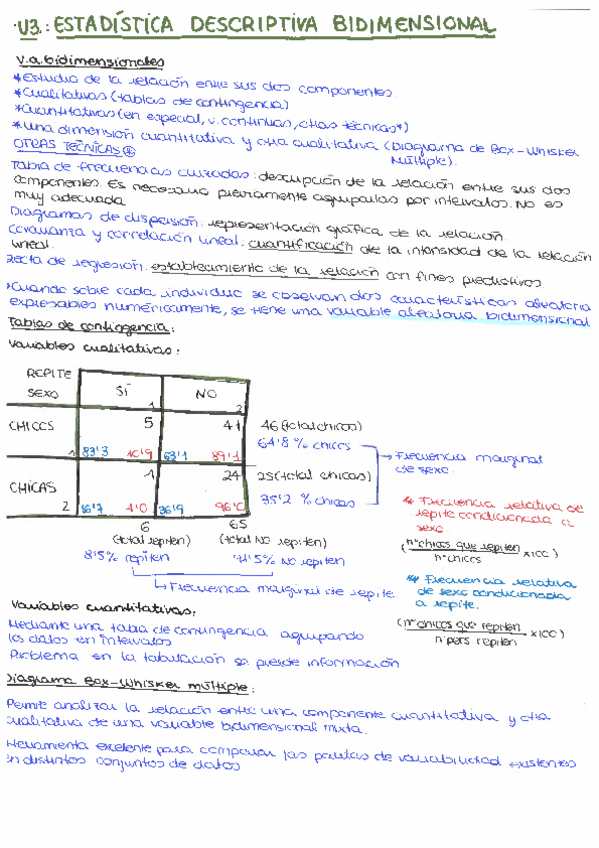 U3.: ESTADÍSTICA DESCRIPTIVA BIDIMENSIONAL
V.a. bidimensionales
*Estudio de la relación entre sus dos componentes.
*Cualitativas (tablas de contingencia)
*Cuantitativas (en especial, v. continuas, otras técnicas*)
*Una dimensión cuantitativa y otra cualitativa (Diagrama de Box-Whisker
Múltiple).
OTRAS TÉCNICAS
Tabla de frecuencias cruzadas: descripción de la relación entre sus dos
componentes. Es necesario previamente agruparlas por intervalos. No es
muy adecuada
Diagramas de dispersión: representación gráfica de la relación.
Covarianza y correlación lineal: cuantificación de la intensidad de la relación
lineal.
Recta de regresión: establecimiento de la relación con fines predictivos
*Cuando sobre cada individuo se observan dos características aleatoria
expresables numéricamente, se tiene una variable aleatoria bidimensional
Tablas de contingencia:
Variables cualitativas:
REPITE
SEXO
SÍ
1
NO
2
CHICOS
1
5
83'3
10'9
41
63'1
89'1
46 (total chicos)
64'8 % chicos
CHICAS
2
1
16'7
4'0
24
36'9
96'0
25 (total chicas)
35'2 % chicas
→ Frecuencia marginal
de sexo.
6
(total repiten)
8'5% repiten
65
(total NO repiten)
91'5% NO repiten
↳ Frecuencia marginal de repite
** Frecuencia relativa de
repite condicionada a
sexo
(nº chicos que repiten / nº chicos x100)
** Frecuencia relativa
de sexo condicionada
a repite.
(nº chicos que repiten / nº pers repiten x100)
Variables cuantitativas:
Mediante una tabla de contingencia agrupando
los datos en intervalos
Problema en la tabulación se pierde información
Diagrama Box-Whisker múltiple:
Permite analizar la relación entre una componente cuantitativa y otra
cualitativa de una variable bidimensional mixta.
Herramienta excelente para comparar las pautas de variabilidad existentes
en distintos conjuntos de datos